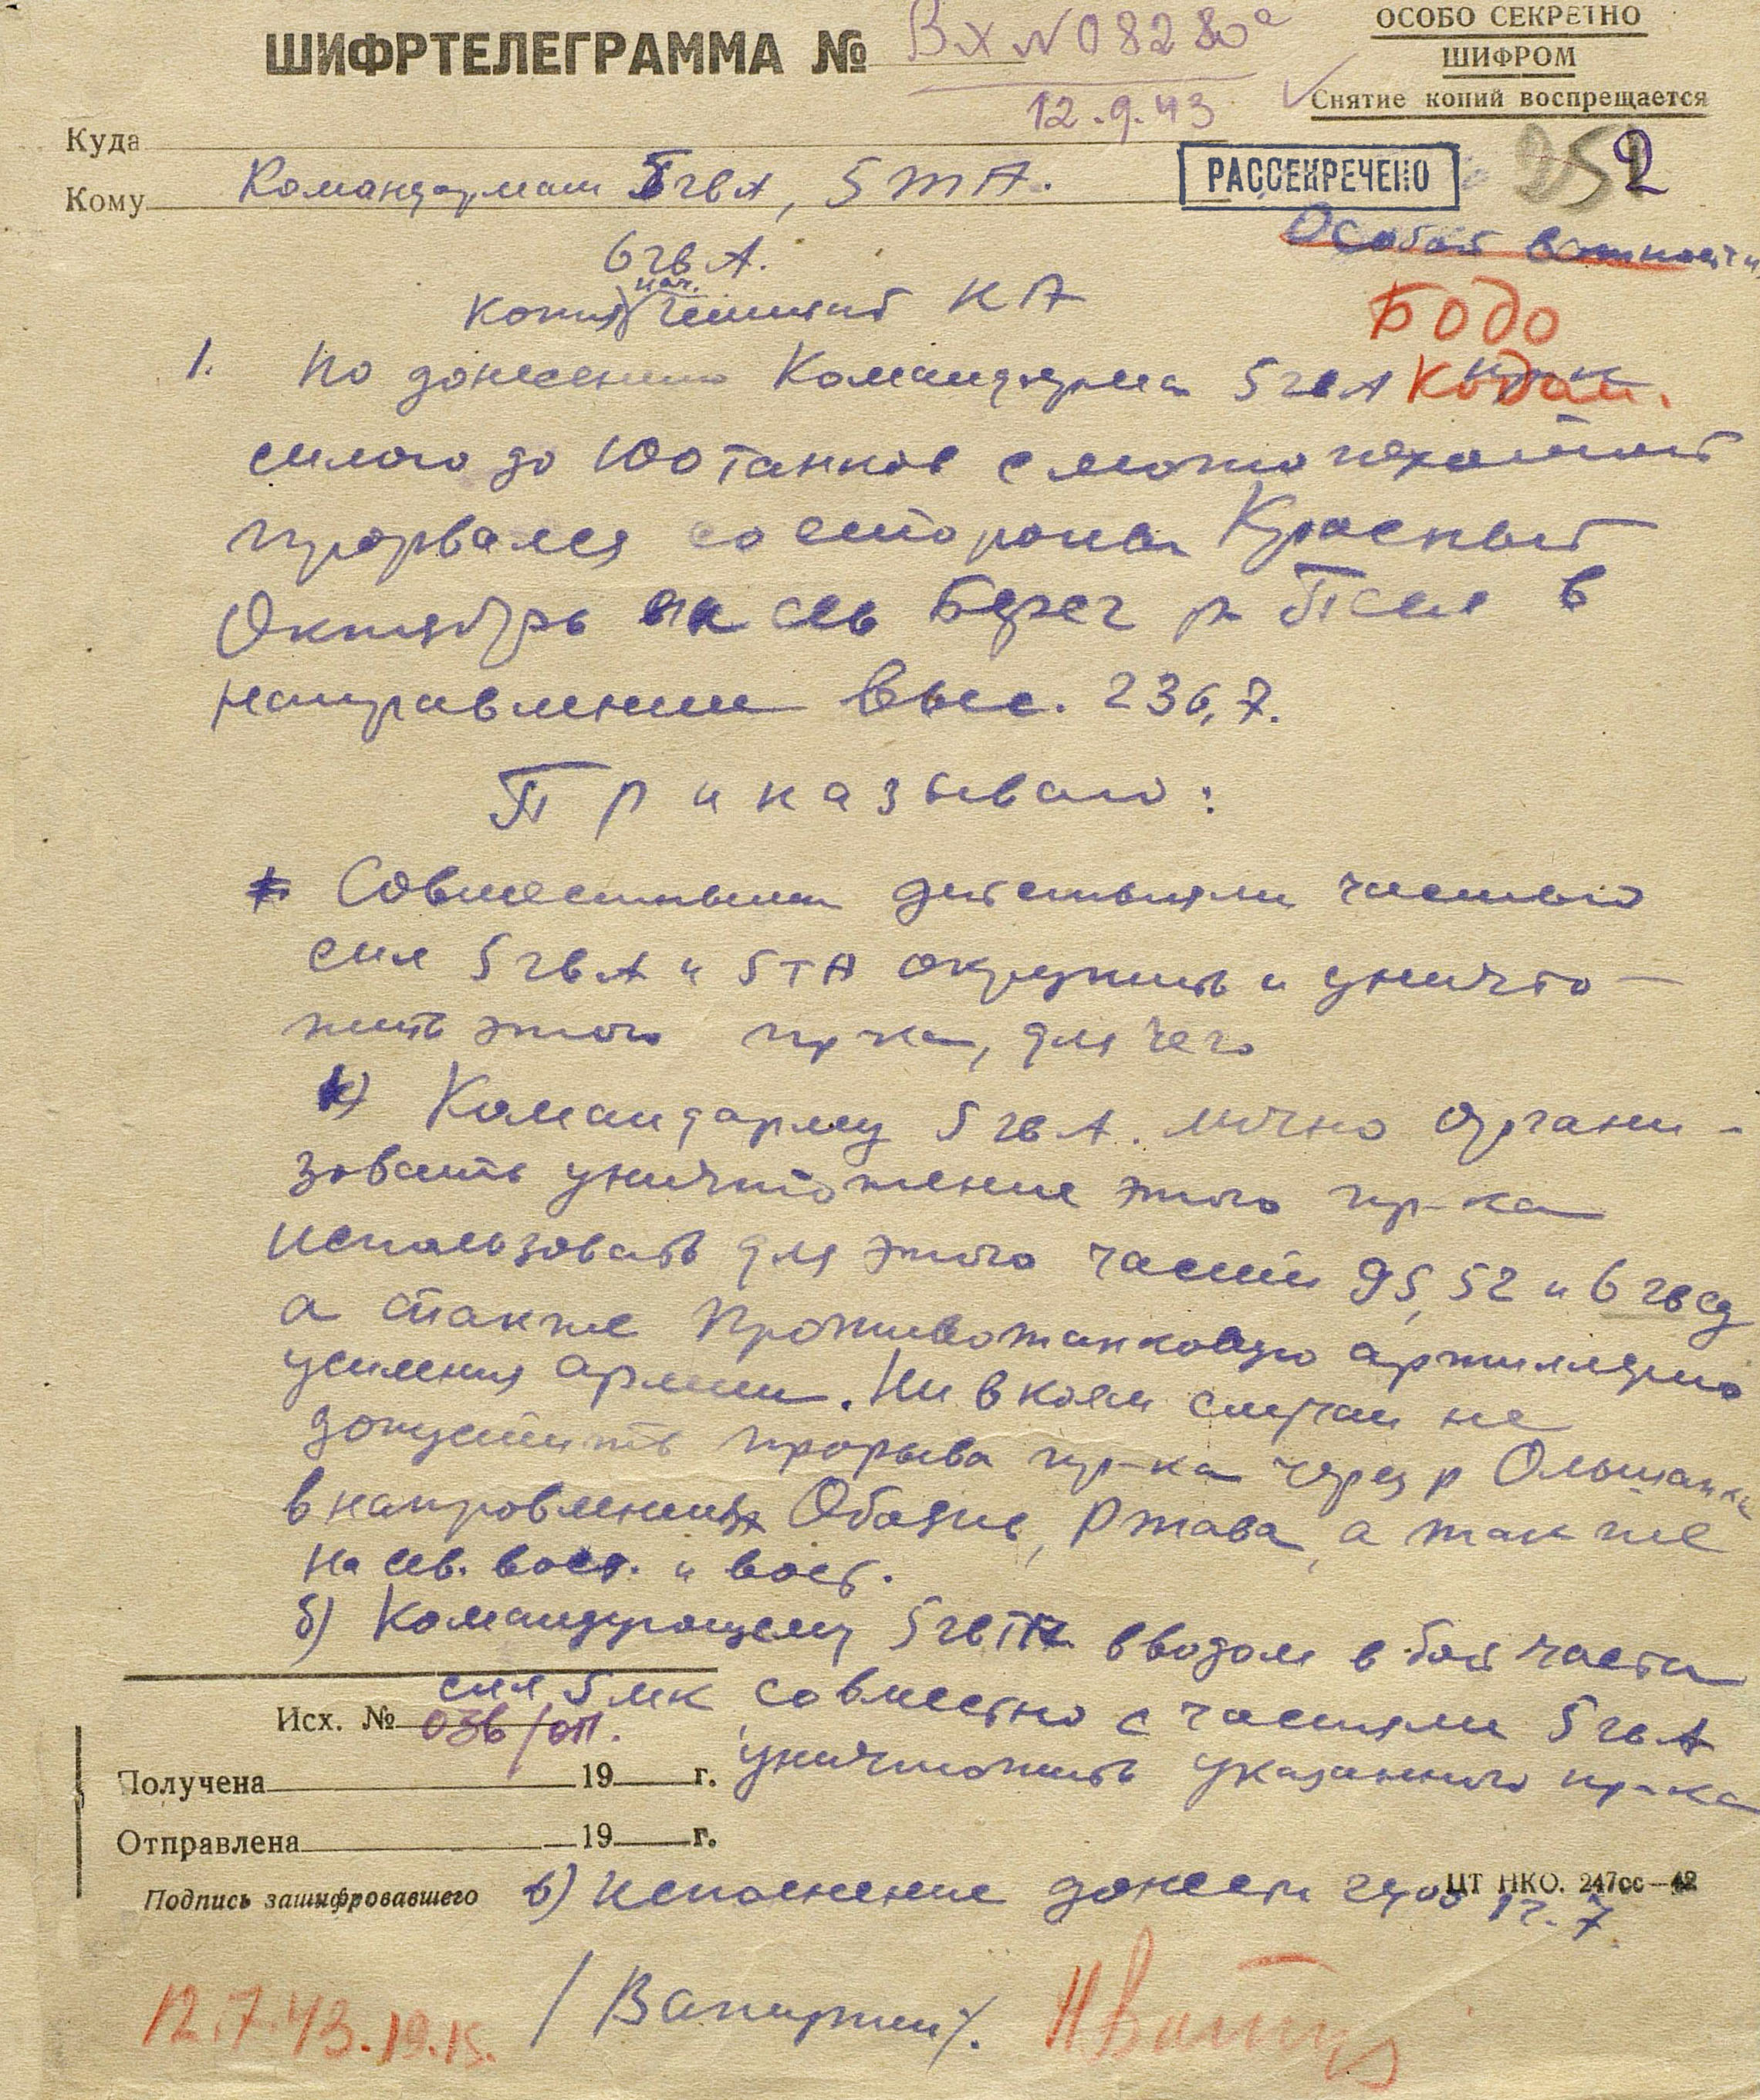 ШИФРТЕЛЕГРАММА № Вх №08280а
12.9.43
ОСОБО СЕКРЕТНО
ШИФРОМ
Снятие копий воспрещается
Куда
РАССЕКРЕЧЕНО
252
Кому Командармам 5 гвА, 5 ТА.
Особой важности
6 гв А.
нач.
копия Генштаб КА
Бодо
Кодом.
1. По донесению Командарма 5 гвА пр-к
силою до 100 танков с мотопехотой
прорвался со стороны Красный
Октябрь на сев берег р Псел в
направлении выс. 236,7.
Приказываю:
Совместными действиями частью
сил 5 гвА и 5ТА окружить и уничто-
жить этого пр-ка, для чего
а) Командарму 5 гвА. лично органи-
зовать уничтожение этого пр-ка
использовать для этого части 95, 52 и 6 гвсд
а также противотанковую артиллерию
усиления армии. Ни в коем случаи не
допустить прорыва пр-ка через р Ольшанка
в направлении Обоянь, Ржава, а так же
на сев. вост. и вост.
б) Командующему 5 гвТА вводом в бой части
сил 5 мк совместно с частями 5 гвА
уничтожить указанного пр-ка
Исх. № 036/оп.
Получена 19 г.
Отправлена 19 г.
ЦТ НКО. 247сс—42
Подпись зашифровавшего
в) Исполнение донести 24,00 12.7
12.7.43. 19.15.
/Ватутин/.
НВатут